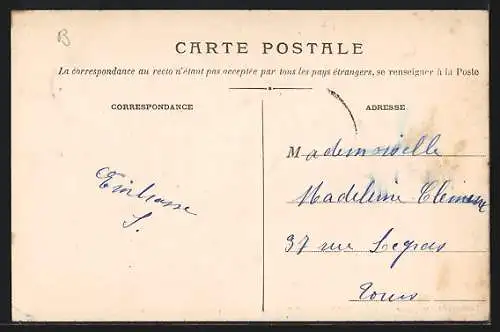 B
CARTE POSTALE
La correspondance au recto n'étant pas acceptée par tous les pays étrangers, se renseigner à la Poste
CORRESPONDANCE
ADRESSE
Mademoiselle
Madeleine
37 rue
Tours
S.